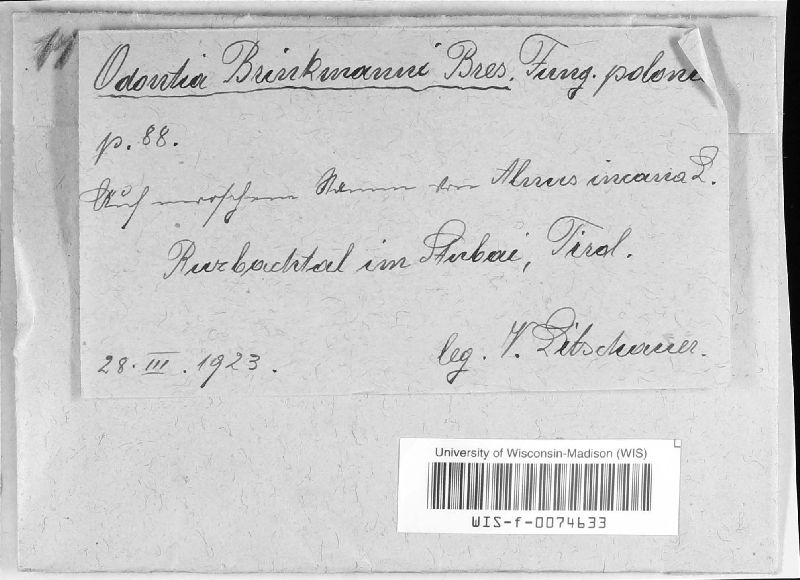 Odontia Brinkmanni Bres. Fung. poloni
p. 88.
Auf morschem Stamm von Alnus incana L.
Ruzbachtal im Stubai, Tirol.
28. III. 1923.
leg. V. Litschauer.
University of Wisconsin-Madison (WIS)
WIS-f-0074633